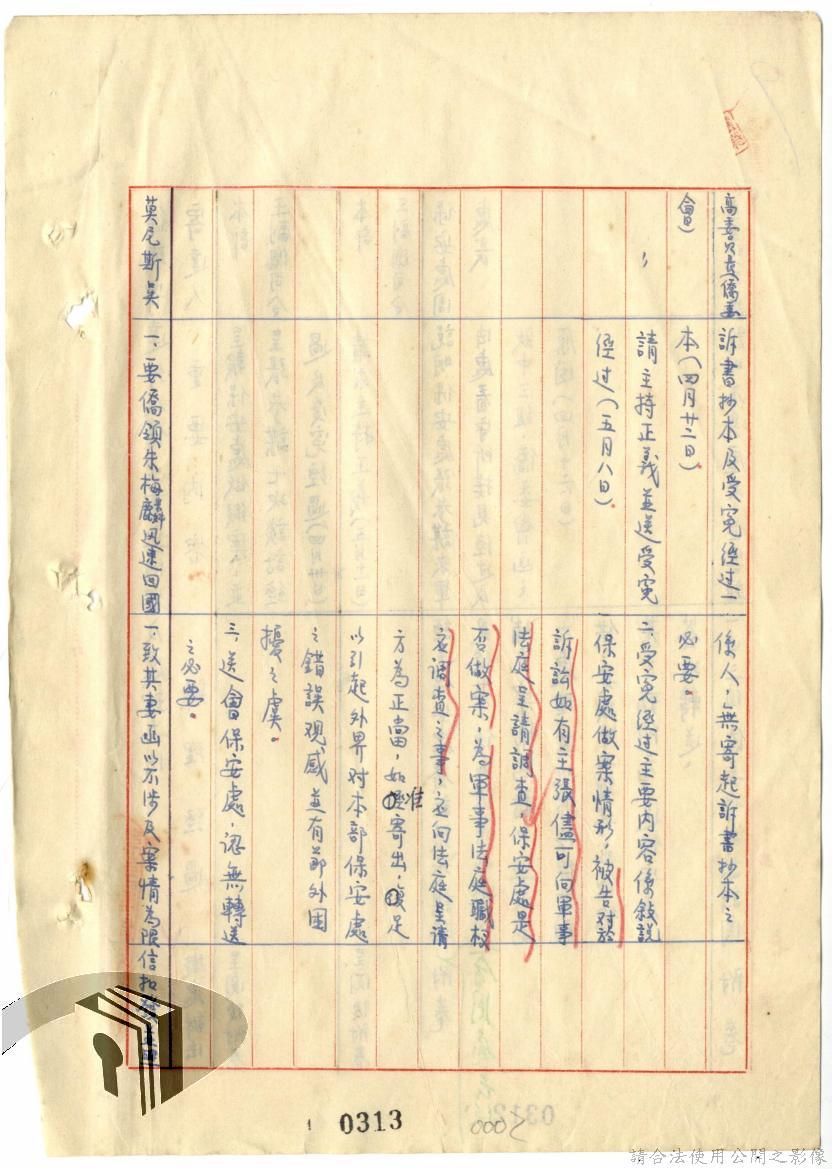 高委員交僑委
會)
訴書抄本及受冤經過一
本(四月廿二日)
請主持正義並送受冤
經过(五月八日)。
係人,無寄起訴書抄本之
必要。
二、受冤經过主要內容係敘說
保安處做案情形,被告对於
訴訟如有主張儘可向軍事
法庭呈請調查,保安處是
否做案,為軍事法庭職权
应調查之事,应向法庭呈請
方為正當,如准寄出,足
以引起外界对本部保安處
之錯誤观感並有節外困
擾之虞。
三、送會保安處,認無轉送
之必要。
莫尼斯吳
一、要僑領朱梅麟迅速回國
一、致其妻函以不涉及案情為限信扣發
0313
0002
請合法使用公開之影像